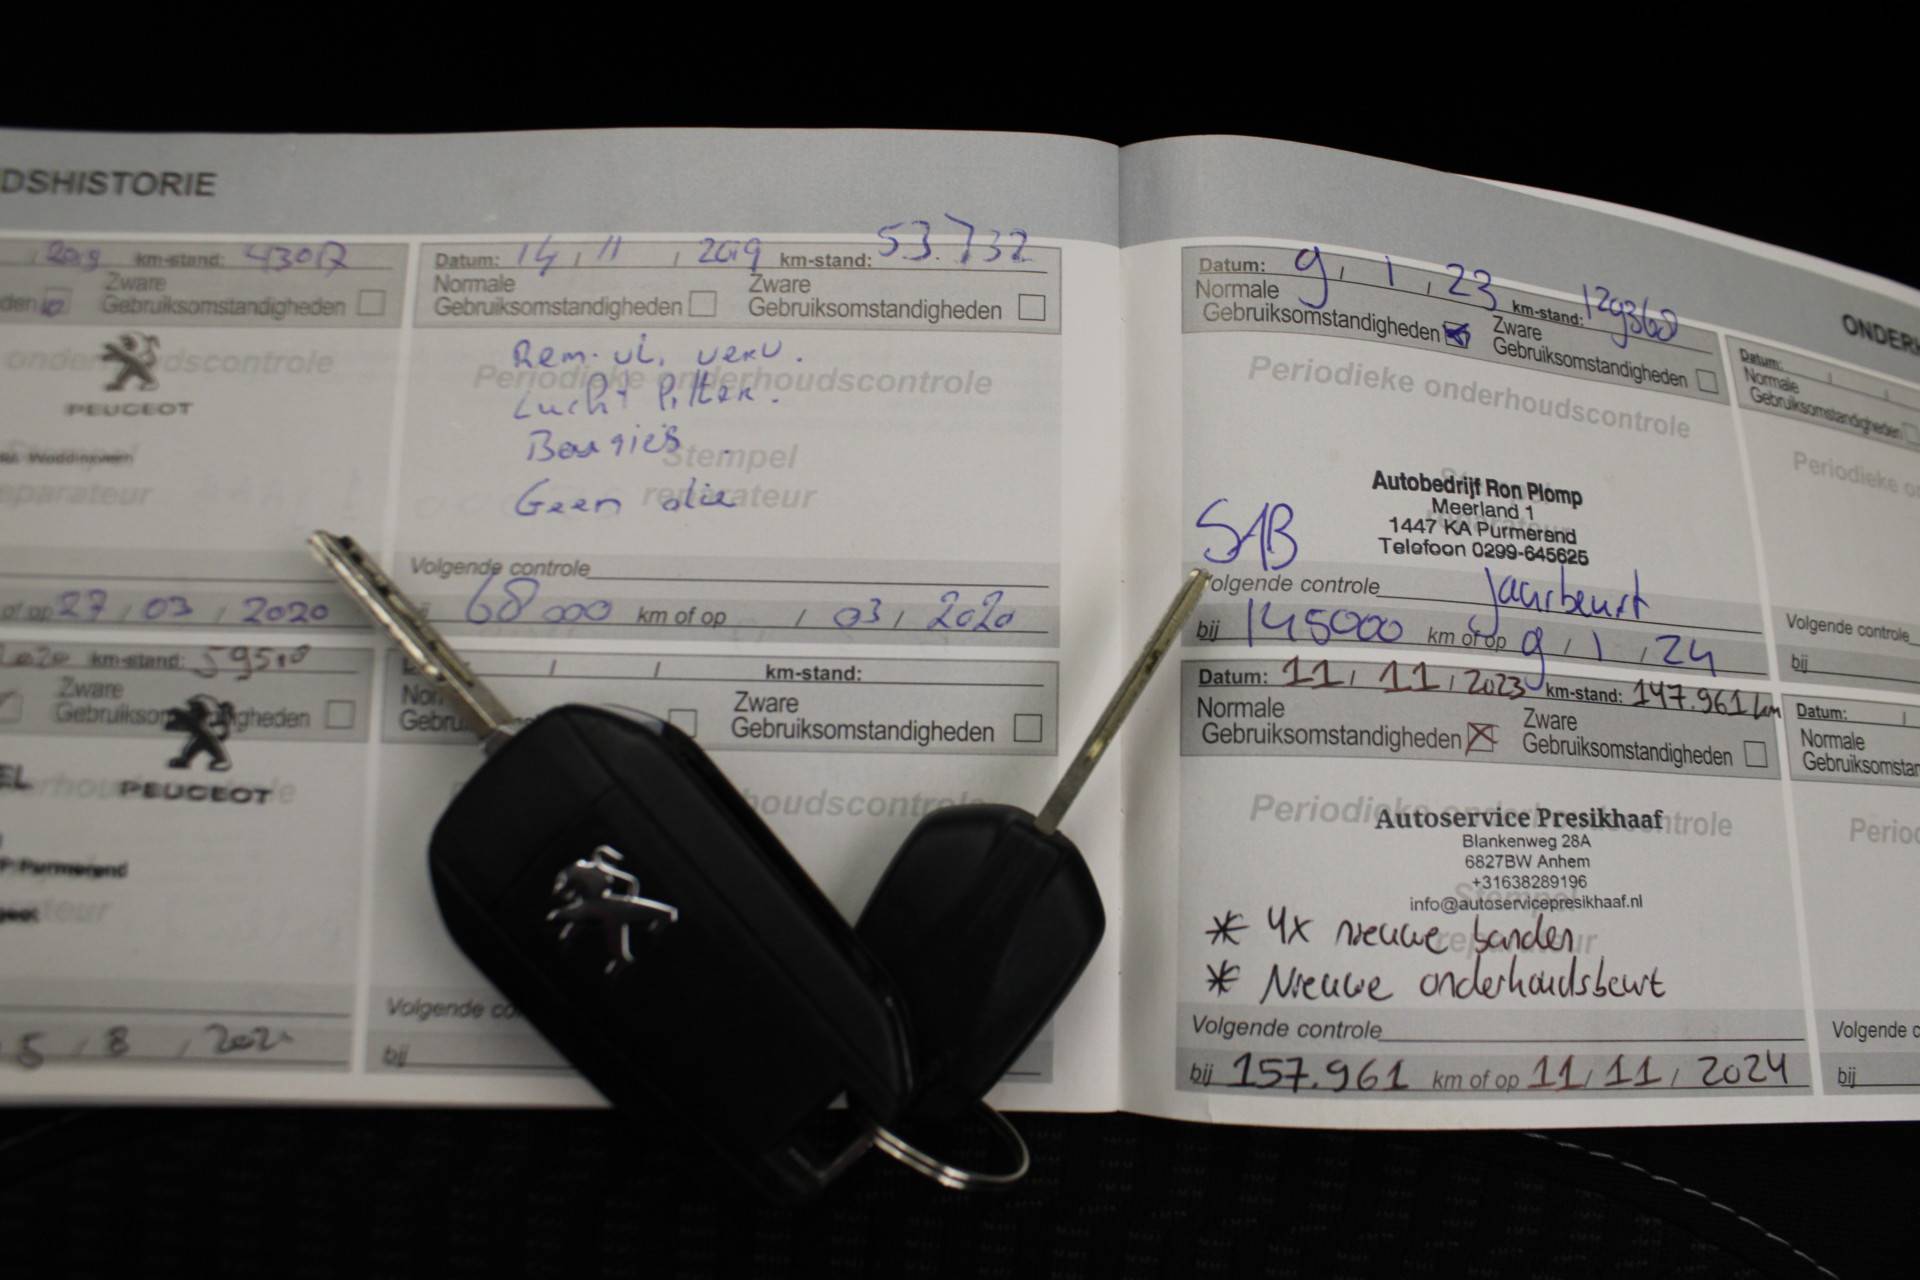 DSHISTORIE
2019 km-stand: 43017
Zware
den Gebruiksomstandigheden
onderhoudscontrole
PEUGEOT
eparateur
of op 27 / 03 / 2020
km-stand:
Zware
Gebruiksomstandigheden
PEUGEOT
Purmerend
5 / 8 /
Datum: 14 / 11 / 2019 km-stand: 53.732
Normale Zware
Gebruiksomstandigheden Gebruiksomstandigheden
Rem. vl. verv.
Periodieke onderhoudscontrole
Lucht filter.
Bougies
Stempel
Geen olie
reparateur
Volgende controle
68000 km of op / 03 / 2020
/ / km-stand:
Zware
Gebruiksomstandigheden
houdscontrole
Volgende co
bij
Datum: 9 / 1 / 23 km-stand: 129368
Normale Zware
Gebruiksomstandigheden Gebruiksomstandigheden
Periodieke onderhoudscontrole
Autobedrijf Ron Plomp
Meerland 1
1447 KA Purmerend
Telefoon 0299-645625
Volgende controle Jaarbeurt
bij 145000 km of op 9 / 1 / 24
Datum: 11 / 11 / 2023 km-stand: 147.961 km
Normale Zware
Gebruiksomstandigheden Gebruiksomstandigheden
Periodieke onderhoudscontrole
Autoservice Presikhaaf
Blankenweg 28A
6827BW Arnhem
+31638289196
info@autoservicepresikhaaf.nl
* 4x nieuwe banden
* Nieuwe onderhoudsbeurt
Volgende controle
bij 157.961 km of op 11 / 11 / 2024
ONDERH
Datum: / /
Normale
Gebruiksomstandigheden
Periodieke o
Volgende controle
bij
Datum: /
Normale
Gebruiksomstan
Perio
Volgende c
bij